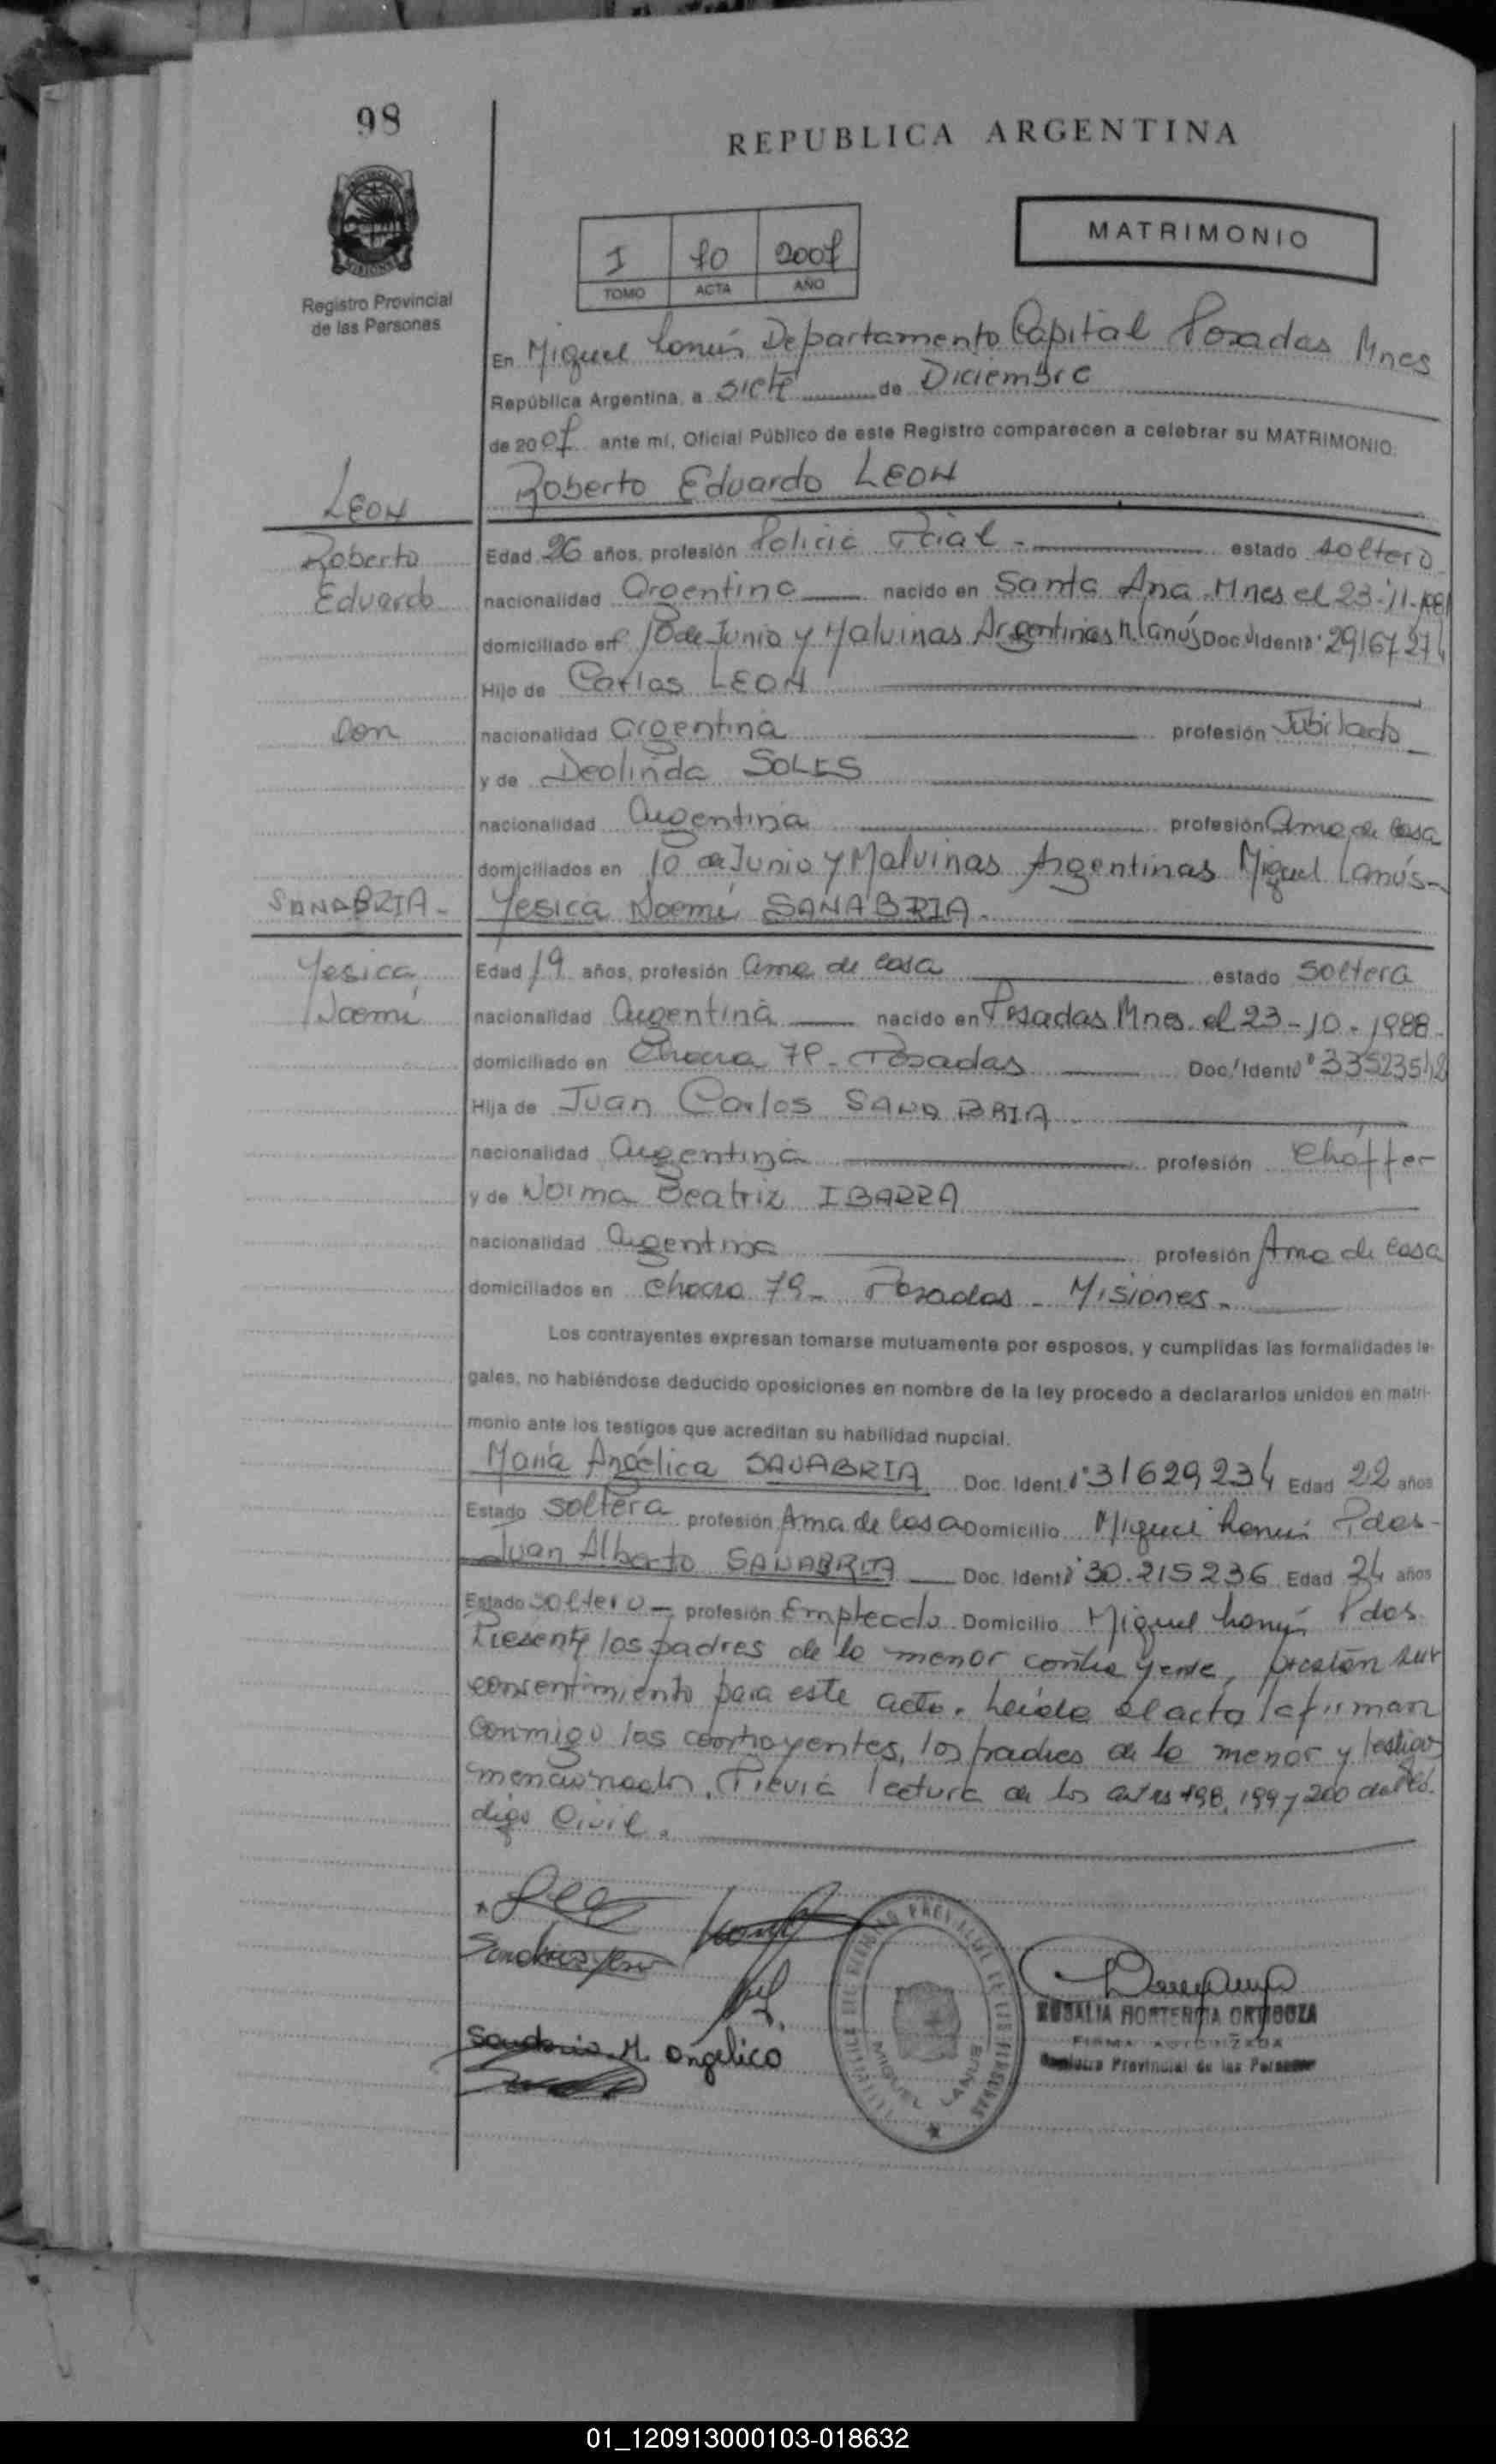 98
REPUBLICA ARGENTINA
MATRIMONIO
I 70 2007
TOMO ACTA AÑO
Registro Provincial
de las Personas
En Miguel Lanús Departamento Capital Posadas Mnes
República Argentina, a siete de Diciembre
de 2007 ante mí, Oficial Público de este Registro comparecen a celebrar su MATRIMONIO:
LEON
Roberto Eduardo LEON
Roberto
Edad 26 años, profesión Policía Pcial - estado soltero
Eduardo
nacionalidad Argentina nacido en Santa Ana Mnes el 23-11-1981
domiciliado en 10 de Junio y Malvinas Argentinas M. Lanús Doc. Ident. Nº 29167274
Hijo de Carlos LEON
con
nacionalidad argentina profesión Jubilado
y de Deolinda SOLES
nacionalidad Argentina profesión Ama de Casa
domiciliados en 10 de Junio y Malvinas Argentinas Miguel Lanús-
SANABRIA -
Yesica Noemí SANABRIA -
Yesica
Edad 19 años, profesión ama de casa estado soltera
Noemí
nacionalidad Argentina nacido en Posadas Mnes. el 23-10-1988-
domiciliado en Chacra 79 - Posadas Doc. Ident. Nº 33523542
Hija de Juan Carlos SANABRIA
nacionalidad Argentina profesión Choffer
y de Norma Beatriz IBARRA
nacionalidad Argentina profesión Ama de Casa
domiciliados en Chacra 79 - Posadas - Misiones -
Los contrayentes expresan tomarse mutuamente por esposos, y cumplidas las formalidades le-
gales, no habiéndose deducido oposiciones en nombre de la ley procedo a declararlos unidos en matri-
monio ante los testigos que acreditan su habilidad nupcial.
María Angélica SANABRIA Doc. Ident. Nº 31629234 Edad 22 años
Estado soltera profesión Ama de Casa Domicilio Miguel Lanús Pdas-
Juan Alberto SANABRIA Doc. Ident. Nº 30.215236 Edad 24 años
Estado soltero - profesión Empleado Domicilio Miguel Lanús Pdas.
Presente los padres de la menor contrayente, prestan sus
consentimiento para este acto. Leída el acta la firman
conmigo los contrayentes, los padres de la menor y testigos
mencionados. Previa lectura de los artes 198, 199 y 200 del Có-
digo Civil.
Sanabria M. Angelica
MIGUEL LANUS
ROSALIA HORTENCIA ORTIGOZA
FIRMA AUTORIZADA
Registro Provincial de las Personas
01_120913000103-018632